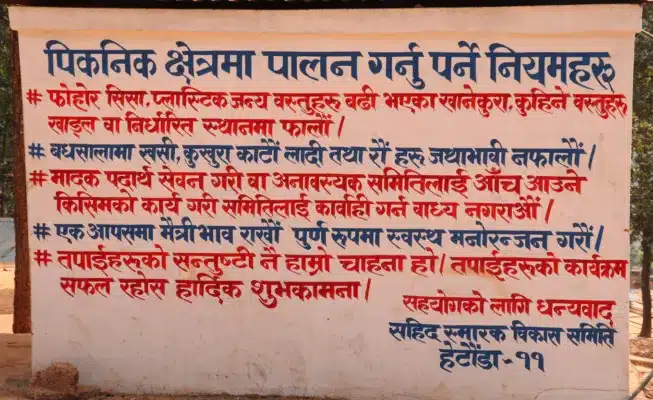 पिकनिक क्षेत्रमा पालन गर्नु पर्ने नियमहरू
# फोहोर सिसा, प्लास्टिक जन्य वस्तुहरू बढी भएका खानेकुरा, कुहिने वस्तुहरू
खाडल वा निर्धारित स्थानमा फालौं ।
# बधसालामा खसी, कुखुरा काटौं लादी तथा रौं हरू जथाभावी नफालौं ।
# मादक पदार्थ सेवन गरी वा अनावस्यक समितिलाई आँच आउने
किसिमको कार्य गरी समितिलाई कार्वाही गर्न वाध्य नगराऔं ।
# एक आपसमा मैत्री भाव राखौं पुर्ण रूपमा स्वस्थ मनोरन्जन गरौं ।
# तपाईहरूको सन्तुष्टी नै हाम्रो चाहना हो । तपाईहरूको कार्यक्रम
सफल रहोस हार्दिक शुभकामना ।
सहयोगको लागि धन्यवाद
सहिद स्मारक विकास समिति
हेटौंडा - ११